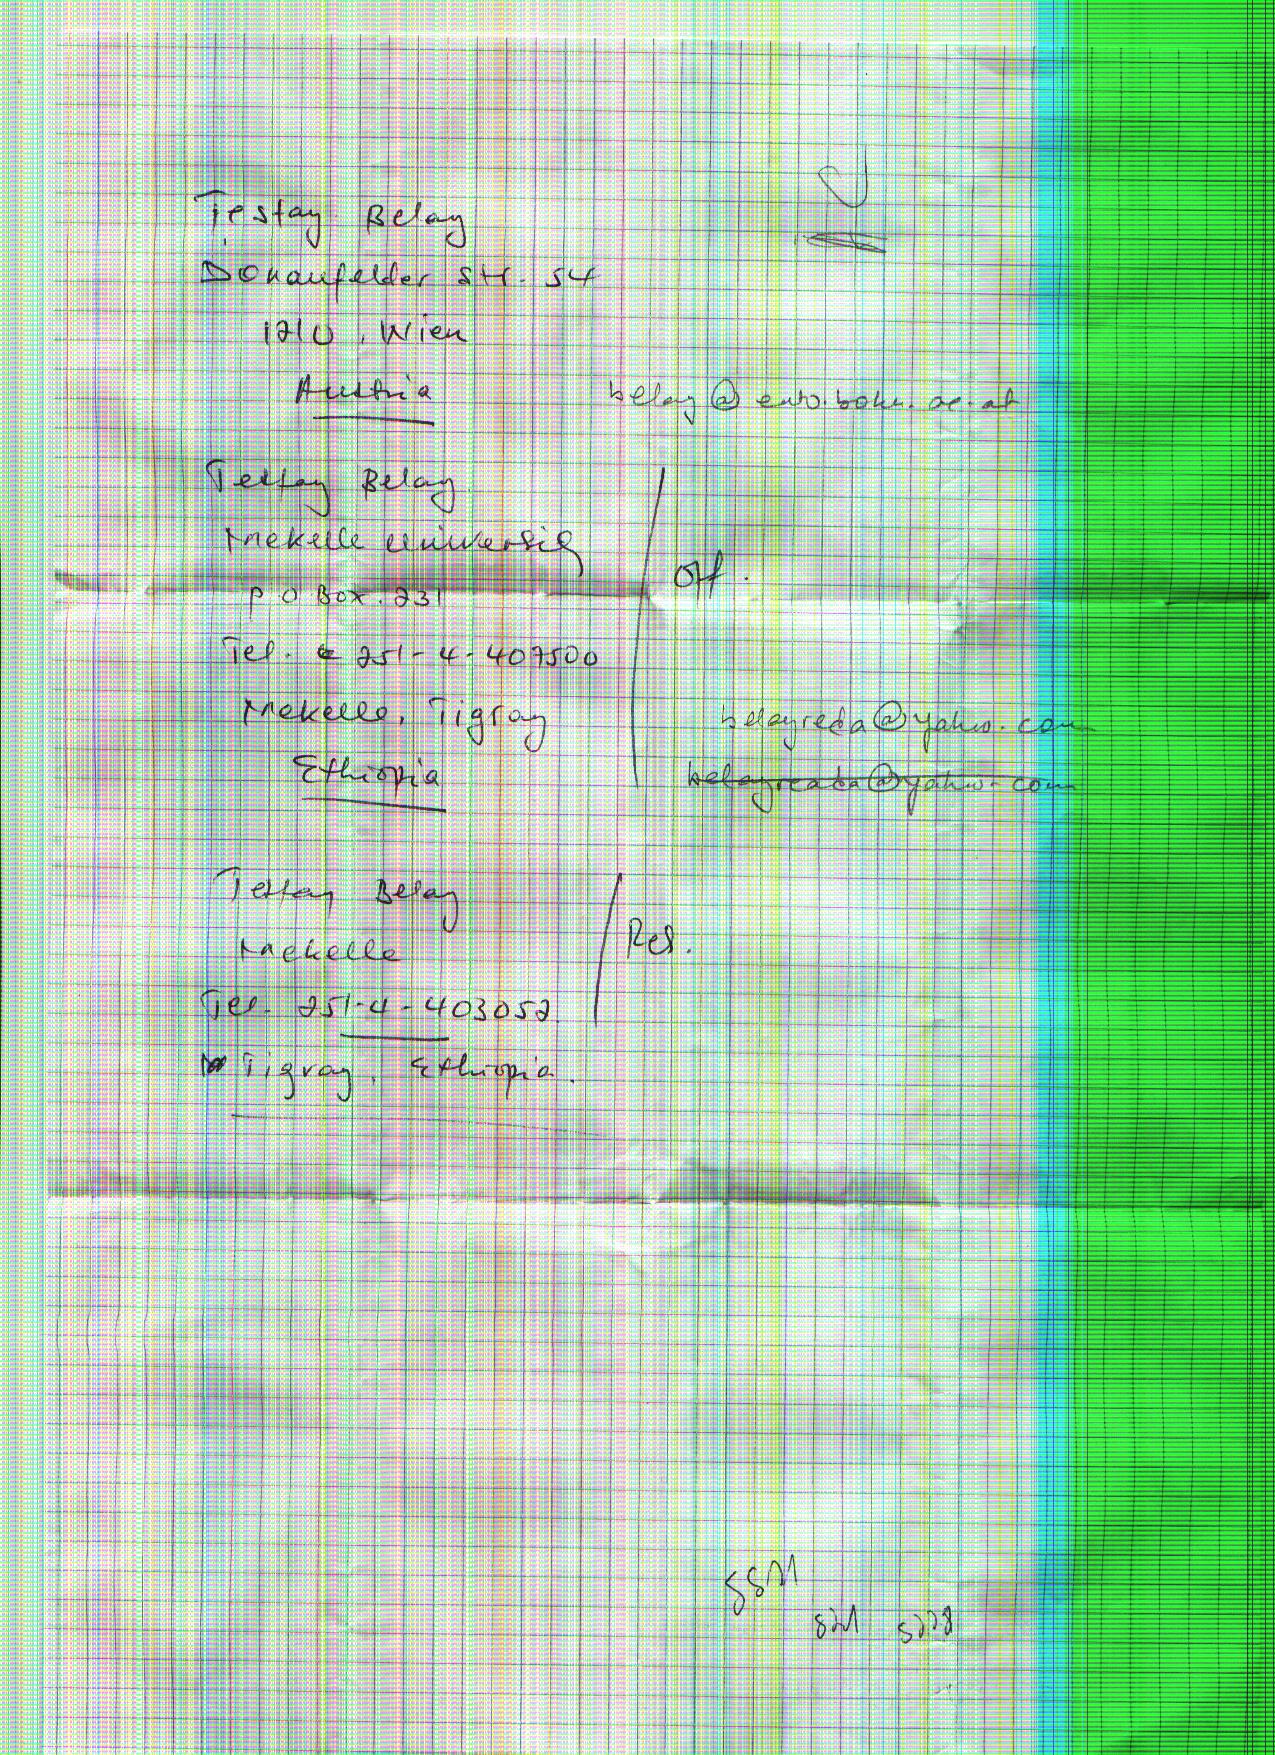 Tesfay Belay
Donaufelder str. 54
1210, Wien
Austria
belay@edv1.boku.ac.at
Tesfay Belay
Mekelle University
P.O Box. 231
Off.
Tel. 251-4-407500
Mekelle, Tigray
belayreda@yahoo.com
Ethiopia
belayreada@yahoo.com
Tesfay Belay
Mekelle
Res.
Tel. 251-4-403052
Tigray, Ethiopia.